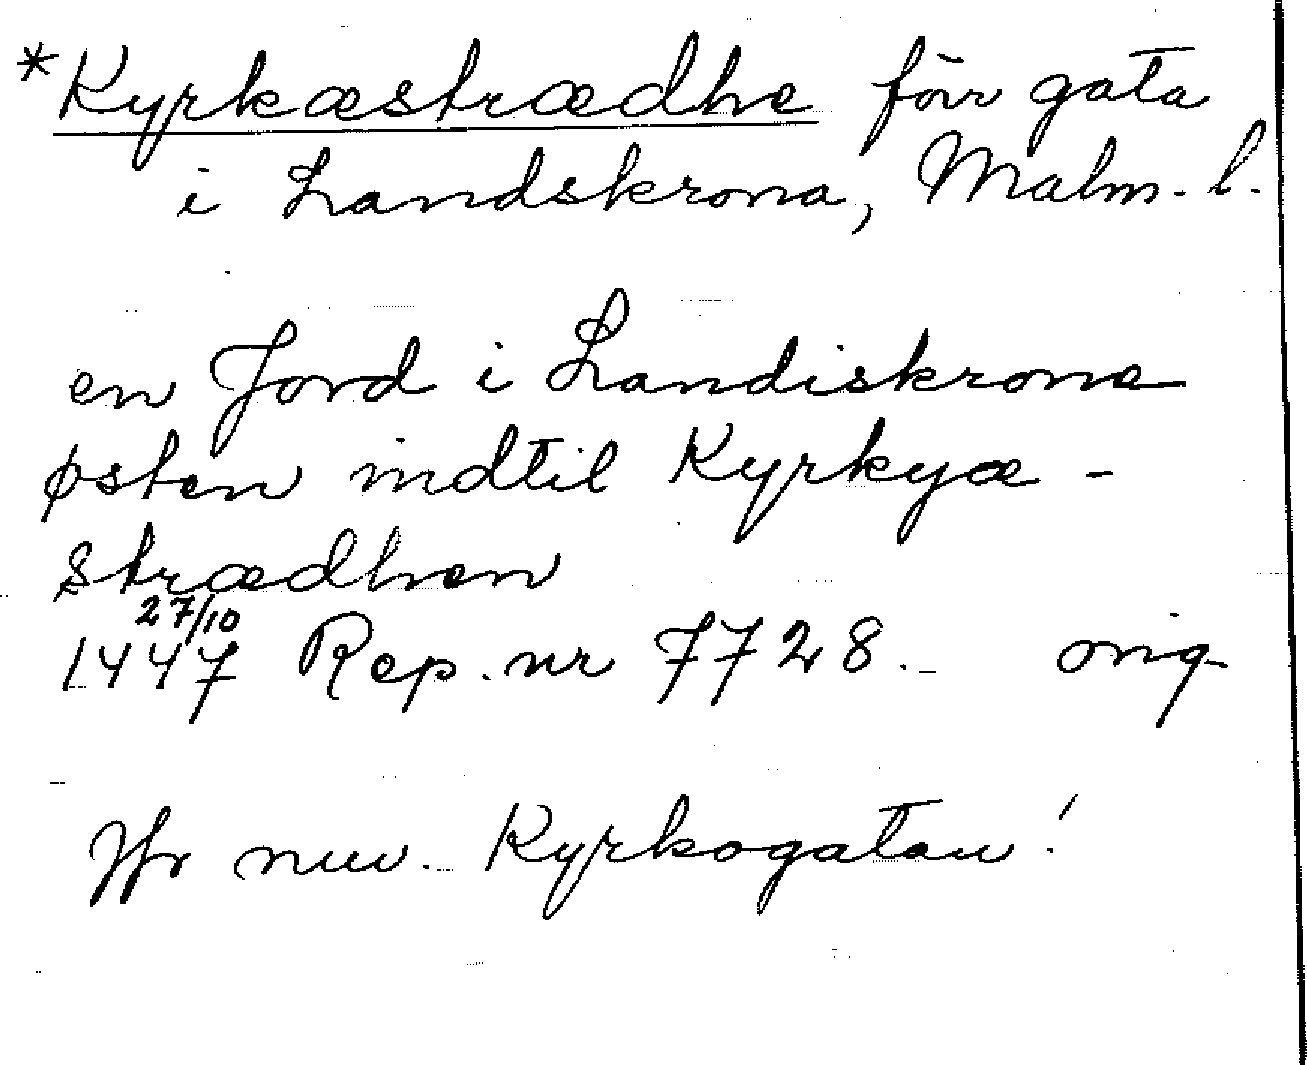 *Kyrkæstrædhe förr gata
i Landskrona, Malm. l.
en Jord i Landiskrone
østen indtil Kyrkyæ-
strædhen
27/10
1447 Rep. nr 7728. orig
Jfr nuv. Kyrkogatan!